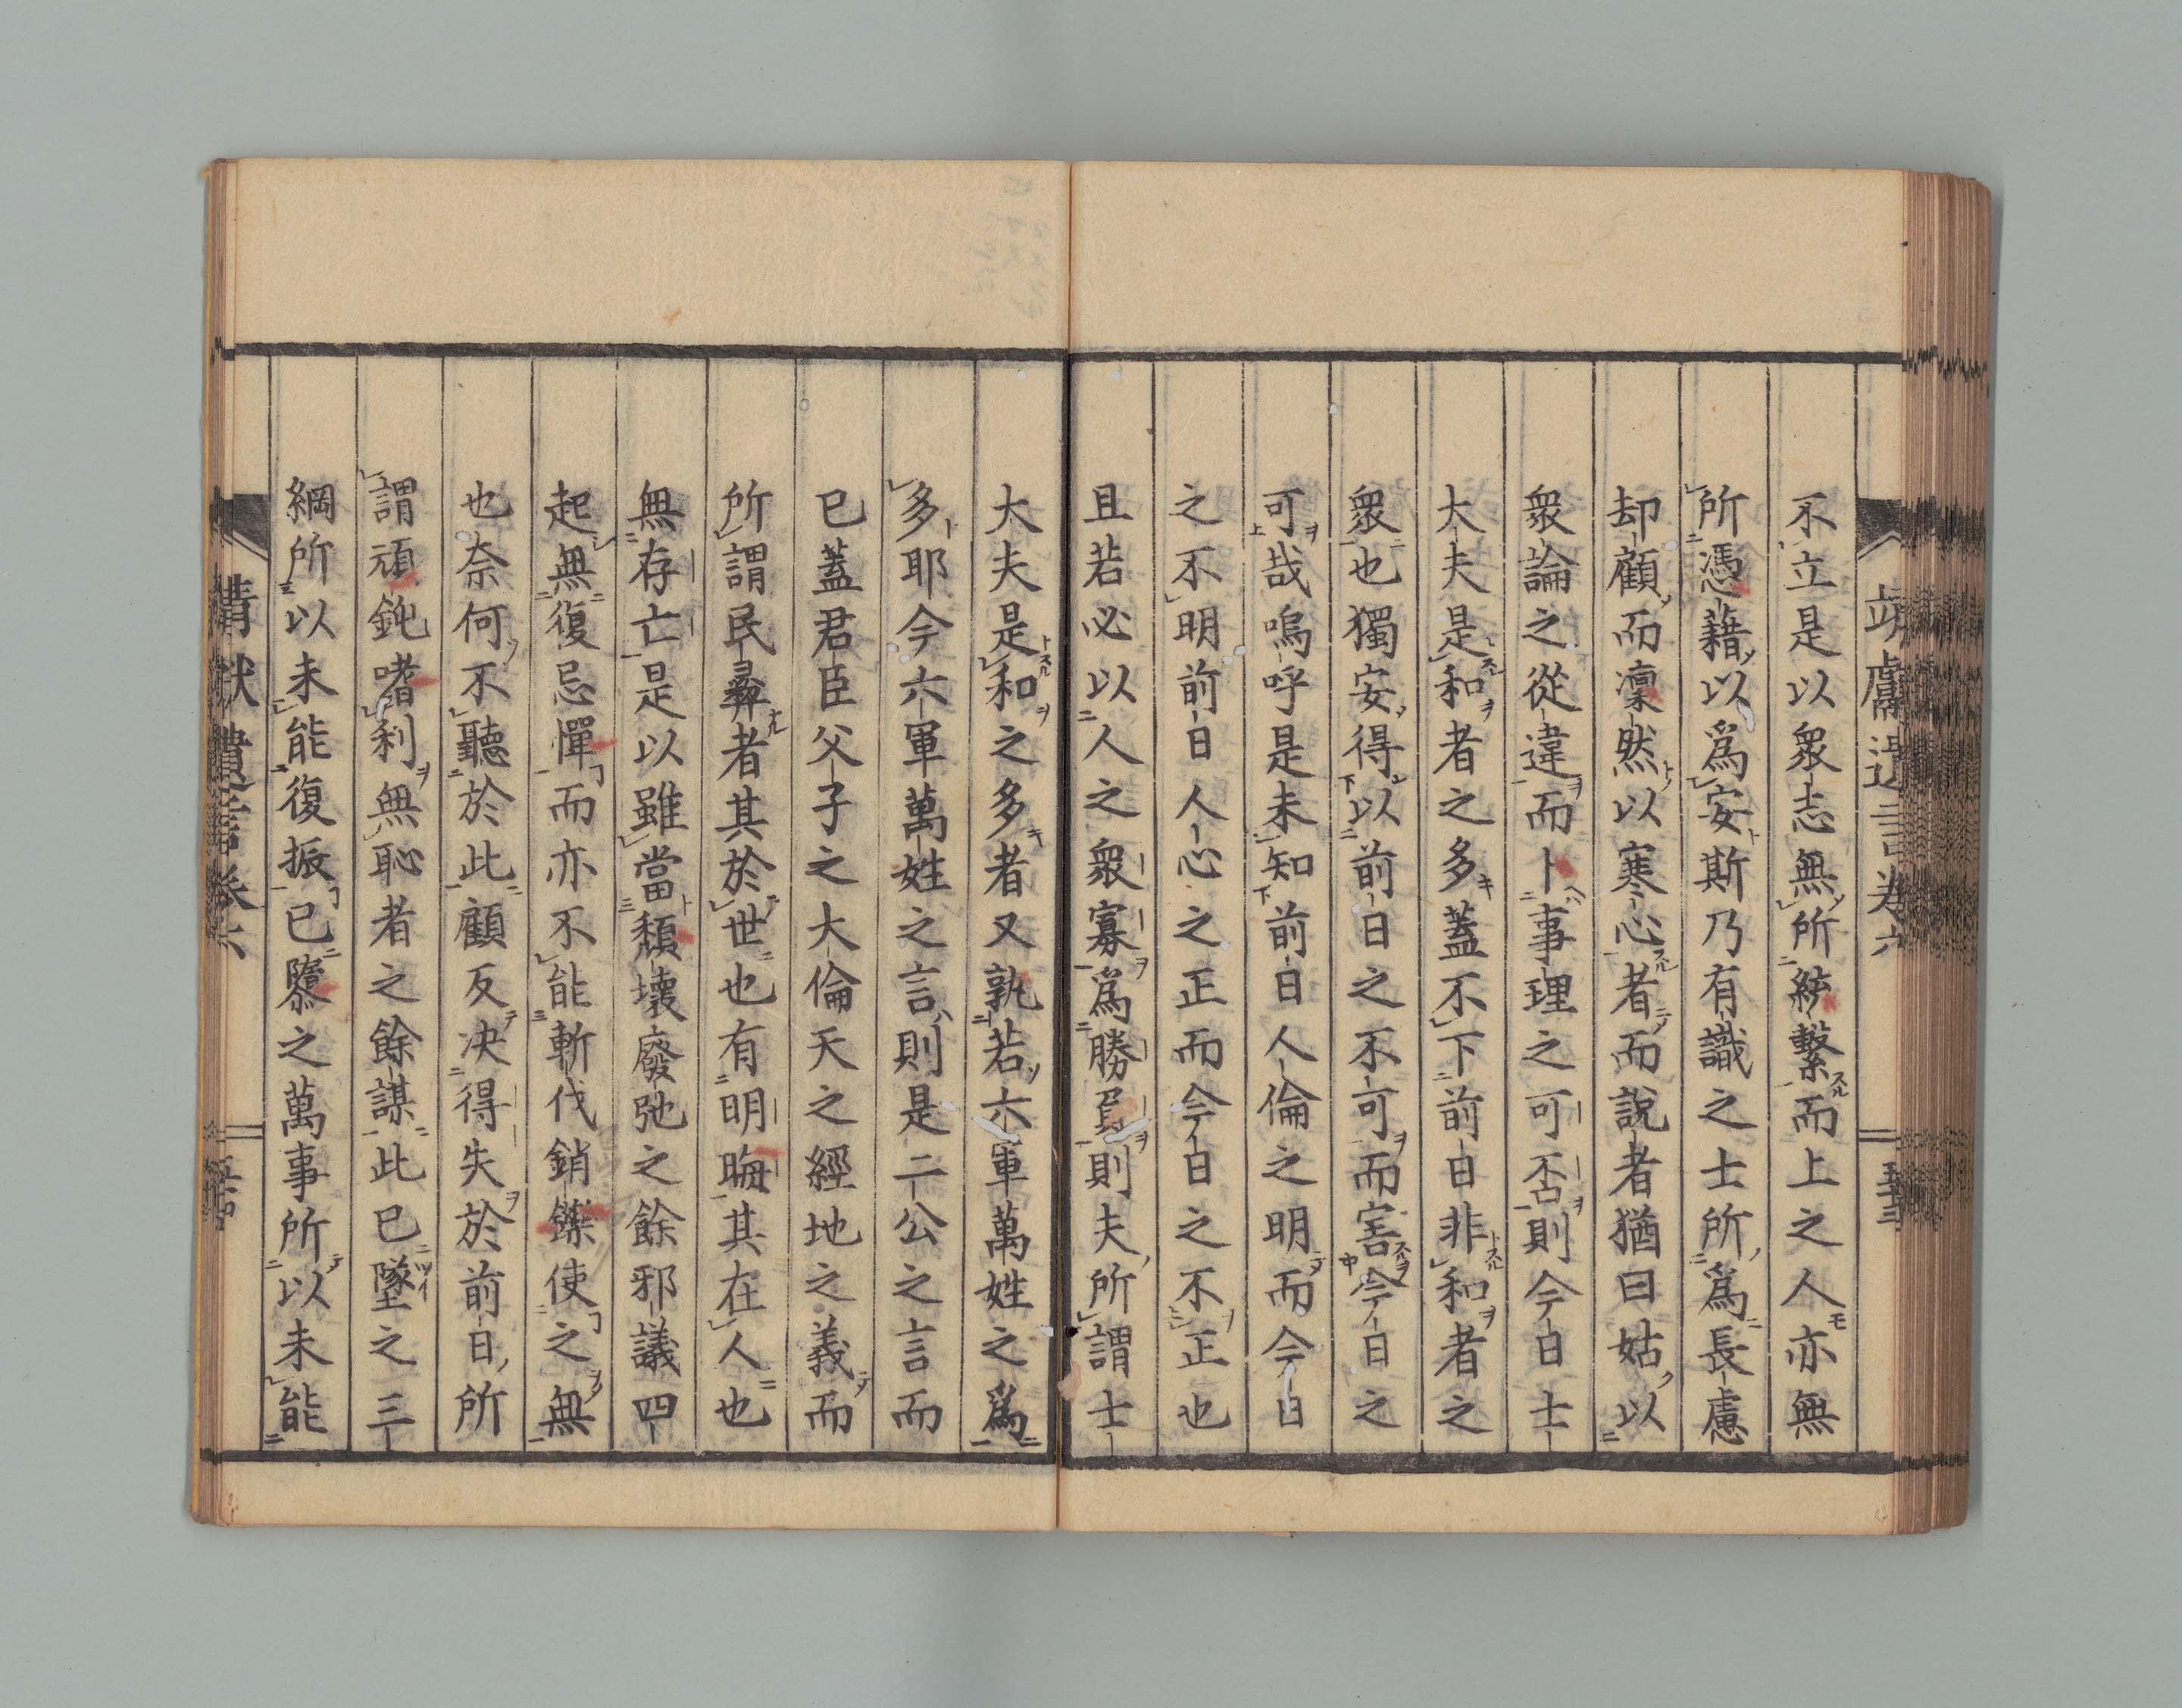 不立是以衆志無所統繫而上之人亦無
所憑藉以爲安斯乃有識之士所爲長慮
却顧而凜然以寒心者而說者猶曰姑以
衆論之從違而卜事理之可否則今日士
大夫是和者之多蓋不下前日非和者之
衆也獨安得以前日之不可而害今日之
可哉嗚呼是未知前日人倫之明而今日
之不明前日人心之正而今日之不正也
且若必以人之衆寡爲勝負則夫所謂士
大夫是和之多者又孰若六軍萬姓之爲
多耶今六軍萬姓之言則是二公之言而
已蓋君臣父子之大倫天之經地之義而
所謂民彝者其於世也有明晦其在人也
無存亡是以雖當頽壞廢弛之餘邪議四
起無復忌憚而亦不能斬伐銷鑠使之無
也奈何不聽於此顧反决得失於前日所
謂頑鈍嗜利無恥者之餘謀此已墜之三
綱所以未能復振已隳之萬事所以未能